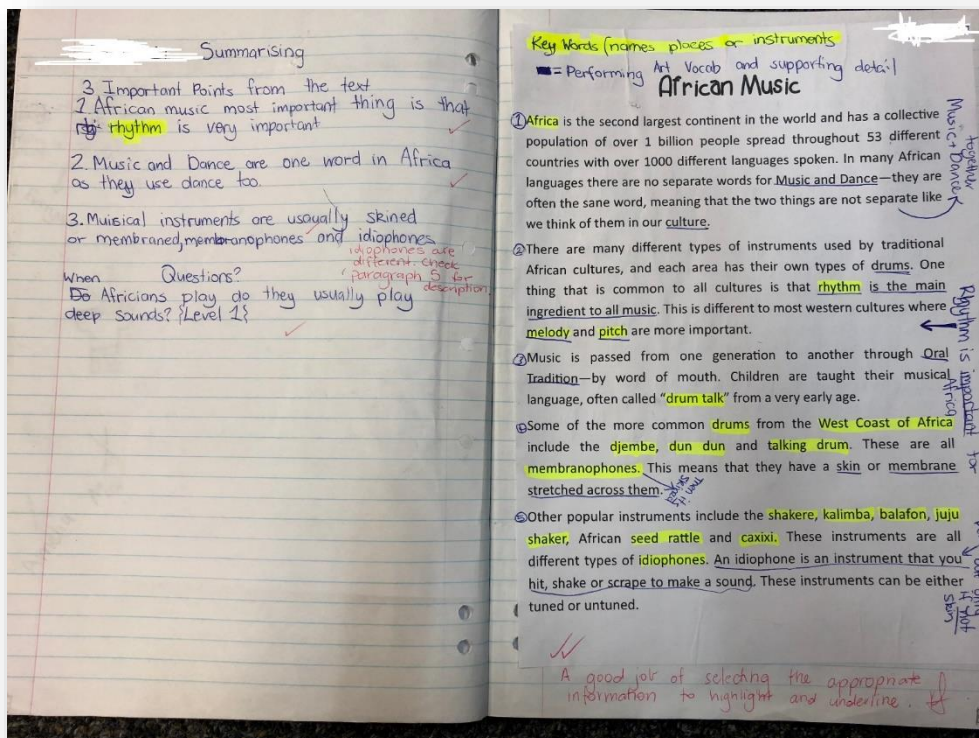 Summarising
3 Important Points from the text
1. African music most important thing is that
rhythm is very important
2. Music and Dance are one word in Africa
as they use dance too.
3. Muisical instruments are usaually skined
or membraned, membranophones and idiophones
idiophones are
different. check
paragraph 5 for
description.
Questions?
When
Do Africians play do they usually play
deep sounds? {Level 1}
Key Words (names places or instruments
= Performing Art Vocab and supporting detail
African Music
① Africa is the second largest continent in the world and has a collective
population of over 1 billion people spread throughout 53 different
countries with over 1000 different languages spoken. In many African
languages there are no separate words for Music and Dance—they are
often the sane word, meaning that the two things are not separate like
we think of them in our culture.
Music + Dance
together
② There are many different types of instruments used by traditional
African cultures, and each area has their own types of drums. One
thing that is common to all cultures is that rhythm is the main
ingredient to all music. This is different to most western cultures where
melody and pitch are more important.
Rhythm is important for
Africa
③ Music is passed from one generation to another through Oral
Tradition—by word of mouth. Children are taught their musical
language, often called "drum talk" from a very early age.
④ Some of the more common drums from the West Coast of Africa
include the djembe, dun dun and talking drum. These are all
membranophones. This means that they have a skin or membrane
stretched across them.
⑤ Other popular instruments include the shakere, kalimba, balafon, juju
shaker, African seed rattle and caxixi. These instruments are all
different types of idiophones. An idiophone is an instrument that you
hit, shake or scrape to make a sound. These instruments can be either
tuned or untuned.
not
skin
A good job of selecting the appropriate
information to highlight and underline.